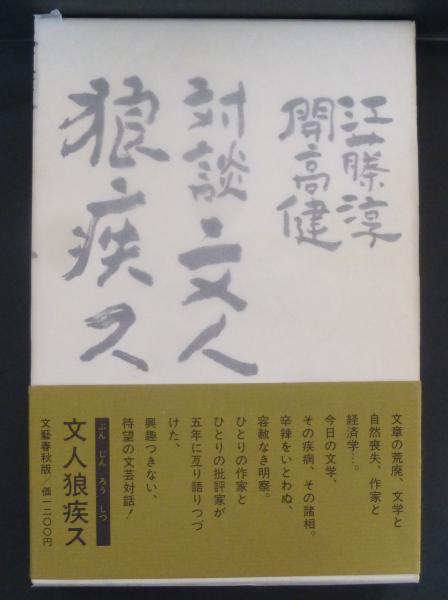 江藤淳
開高健
対談 文人
狼疾ス
文章の荒廃、文学と
自然喪失、作家と
経済学…。
今日の文学、
その疾病、その諸相。
辛辣をいとわぬ、
容赦なき明察。
ひとりの作家と
ひとりの批評家が
五年に亙り語りつづ
けた、
興趣つきない、
待望の文芸対話!
ぶんじんろうしつ
文人狼疾ス
文藝春秋版/価一二〇〇円